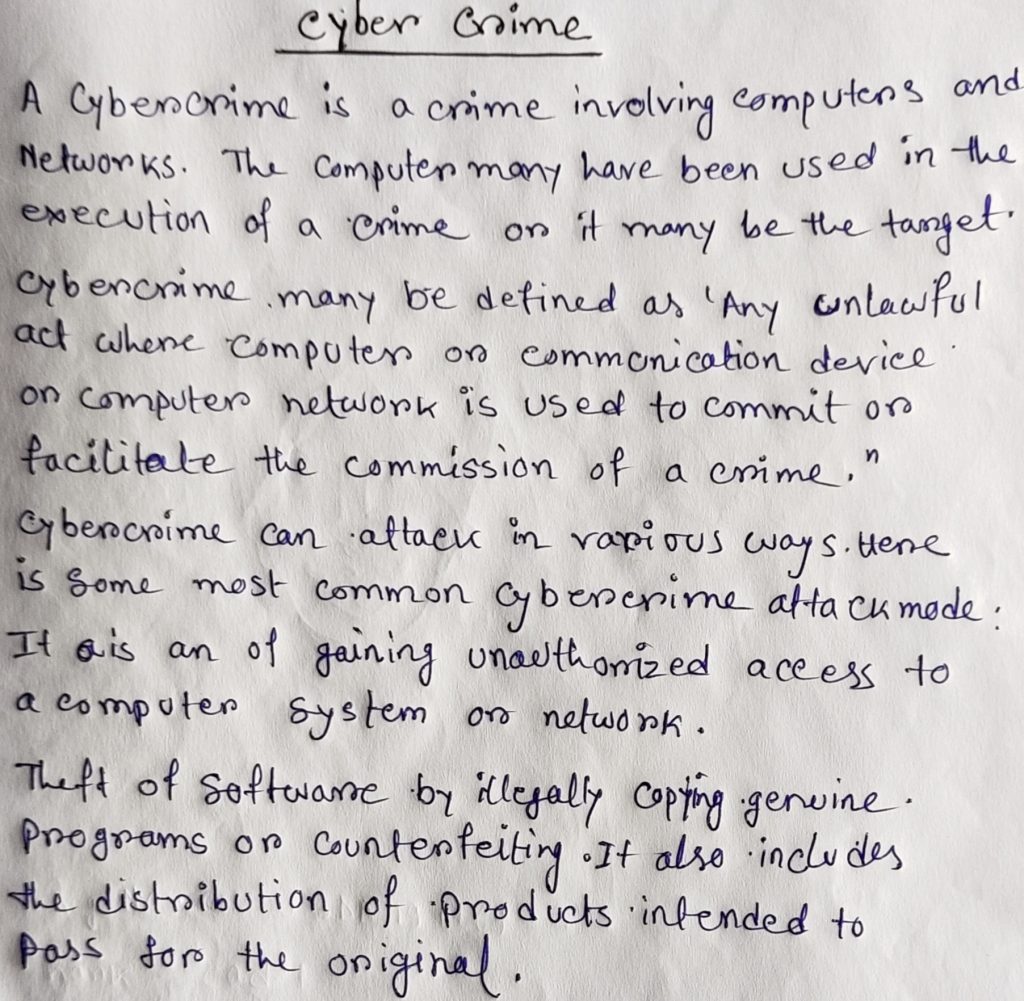 Cyber Crime
A Cybercrime is a crime involving computers and
Networks. The Computer many have been used in the
execution of a crime or it many be the target.
Cybercrime many be defined as 'Any unlawful
act where computer or communication device
or computer network is used to commit or
facilitate the commission of a crime."
Cybercrime can attack in various ways. Here
is Some most common cybercrime attack mode:
It is an of gaining unauthorized access to
a computer system or network.
Theft of Software by illegally copying genuine.
Programs or counterfeiting. It also includes
the distribution of products intended to
Pass for the original.